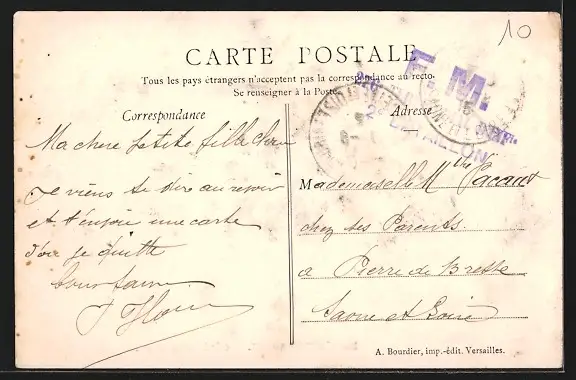 10
CARTE POSTALE
F. M.
Tous les pays étrangers n'acceptent pas la correspondance au recto.
Se renseigner à la Poste
Correspondance
Adresse
Ma chere petite fille
Je viens te dire au revoir
et t'envoie une carte
d'ou je quitte
Mademoiselle Mthe Pacaut
chez ses Parents.
a Pierre de Bresse
Saone et Loire
A. Bourdier, imp.-édit. Versailles.